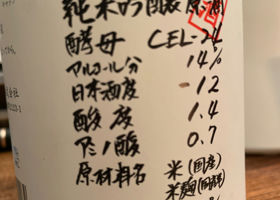 純米吟醸原酒
酵母 CEL-24
アルコール分 14%
日本酒度 -12
酸度 1.4
アミノ酸 0.7
原材料名 米(国産)
米麹(国産米)